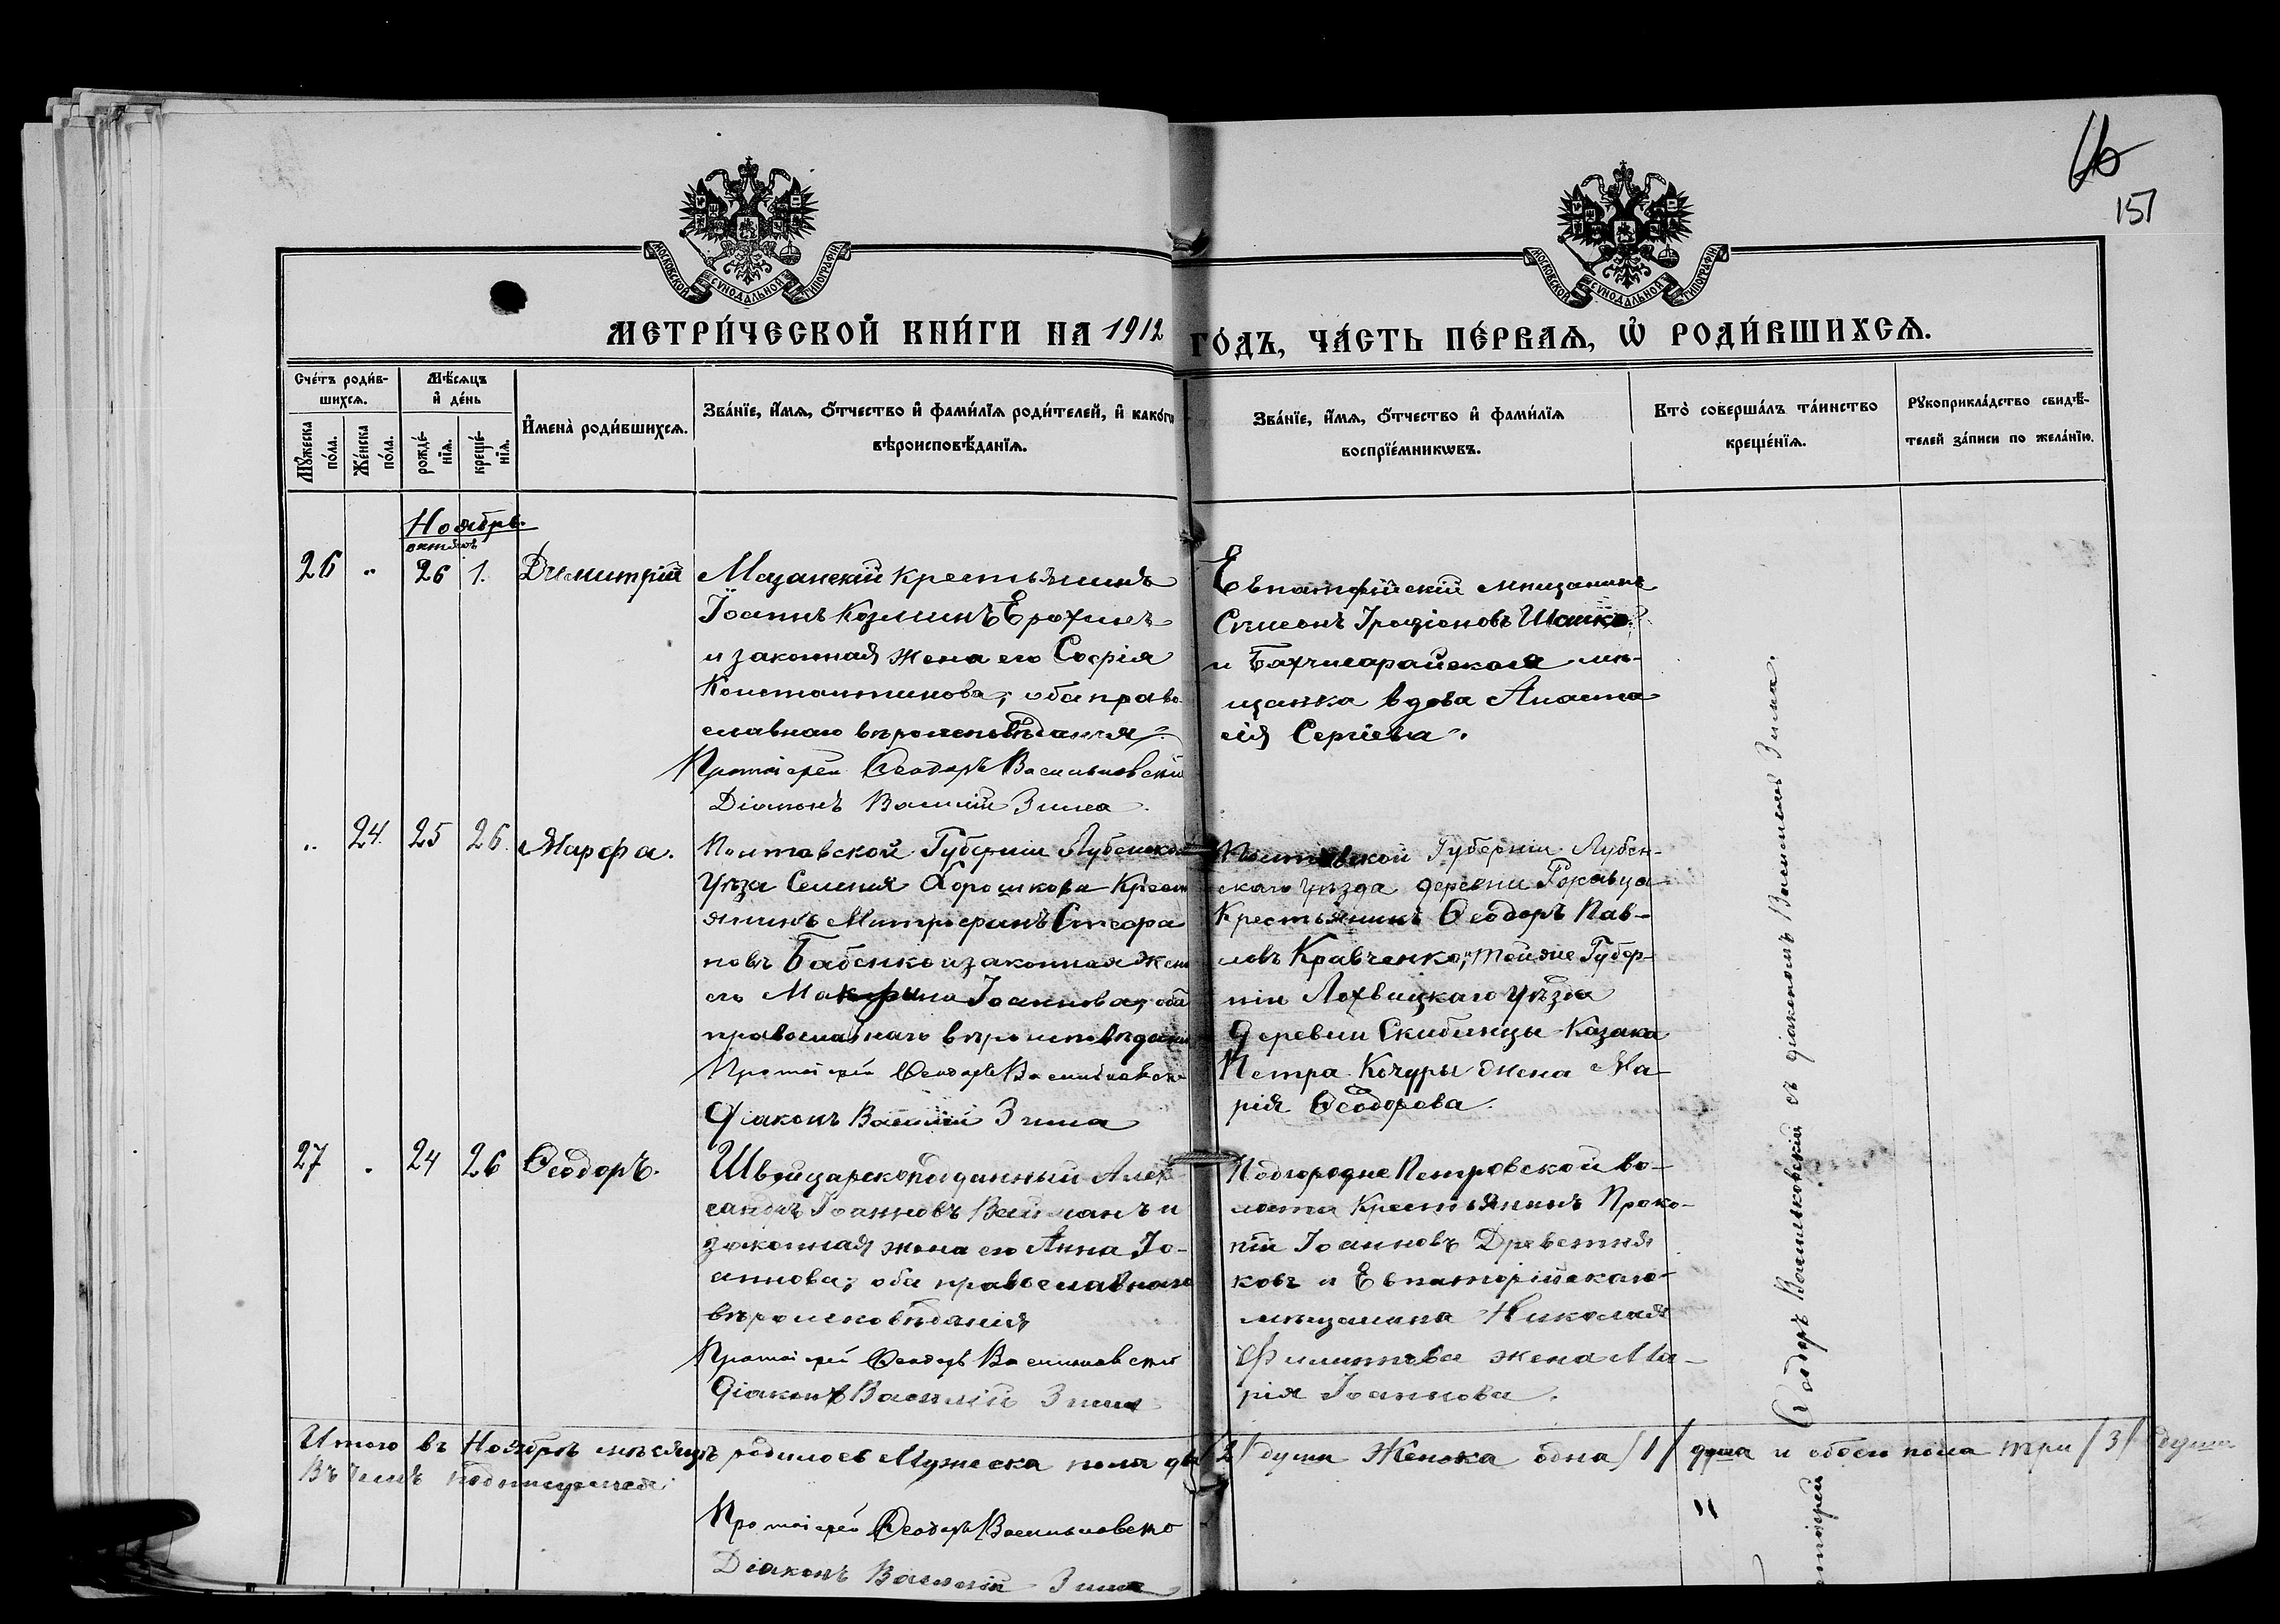 16
151
МОСКОВСКОЙ СѴНОДАЛЬНОЙ ТИПОГРАФІИ
МОСКОВСКОЙ СѴНОДАЛЬНОЙ ТИПОГРАФІИ
МЕТРИ́ЧЕСКОЙ КНИ́ГИ НА 1912 ГО́ДЪ, ЧА́СТЬ ПЕ́РВАѦ, Ѿ РОДИ́ВШИХСѦ.
Сче́тъ роди́в-
шихсѧ.
Мꙋ́жеска
по́ла.
Же́нска
по́ла.
Мѣ́сѧцъ
и҆ де́нь
рожде́-
нїѧ.
креще́-
нїѧ.
И҆мена̀ роди́вшихсѧ.
Зва́нїе, и҆́мѧ, ѻ҆́тчество и҆ фами́лїѧ роди́телей, и҆ како́гѡ
вѣроисповѣ́данїѧ.
Зва́нїе, и҆́мѧ, ѻ҆́тчество и҆ фами́лїѧ
воспрїе́мникѡвъ.
Кто̀ соверша́лъ та́инство
креще́нїѧ.
Рꙋкоприкла́дство свидѣ́-
телей за́писи по жела́нїю.
Ноябрь.
октября
26 " 26 1. Димитрій
Мазанскій крестьянинъ
Іоаннъ Козминъ Ерохинъ
и законная жена его Софія
Константинова; оба право-
славнаго вѣроисповѣданія.
Протоіерей Ѳеодоръ Васильковскій
Діаконъ Василій Зима.
Евпаторійскій мѣщанинъ
Сѵмеонъ Іродіоновъ Шашко
и Бахчисарайская мѣ-
щанка вдова Анаста
сія Сергіева.
" 24. 25 26. Марфа.
Полтавской Губерніи Лубенскаго
Уѣзда Селенія Хорошкова Крест
янинъ Митрофанъ Стефа
новъ Бабенко и законная жена
его Макрина Іоаннова; оба
православнаго вѣроисповѣданія
Протоіерей Ѳеодоръ Васильковскій
Діаконъ Василій Зима
Полтавской Губерніи Лубен-
скаго уѣзда деревни
Крестьянинъ Ѳеодоръ Пав-
ловъ Кравченко; той же Губер-
ніи Лохвицкаго уѣзда
деревни Скибинцы Казака
Петра Кочуры жена Ма-
рія Ѳеодорова.
27 . 24 26 Ѳеодоръ.
Швейцарскоподданный Алек
сандръ Іоанновъ Вейманъ и
законная жена его Анна Іо-
аннова; оба православнаго
вѣроисповѣданія
Протоіерей Ѳеодоръ Васильковскій
Діаконъ Василій Зима
Подгородне Петровской Во-
лости Крестьянинъ Проко-
пій Іоанновъ
ковъ и Евпаторійскаго
мѣщанина Николая
Филиппова жена Ма-
рія Іоаннова.
Протоіерей Ѳеодоръ Васильковскій съ діакономъ Василіемъ Зима.
Итого въ Ноябрѣ мѣсяцѣ родилось Мужеска пола два /2/ души Женска одна /1/ душа и обоего пола три /3/ души
Въ чемъ подписуемся:
Протоіерей Ѳеодоръ Васильковскій
Діаконъ Василій Зима